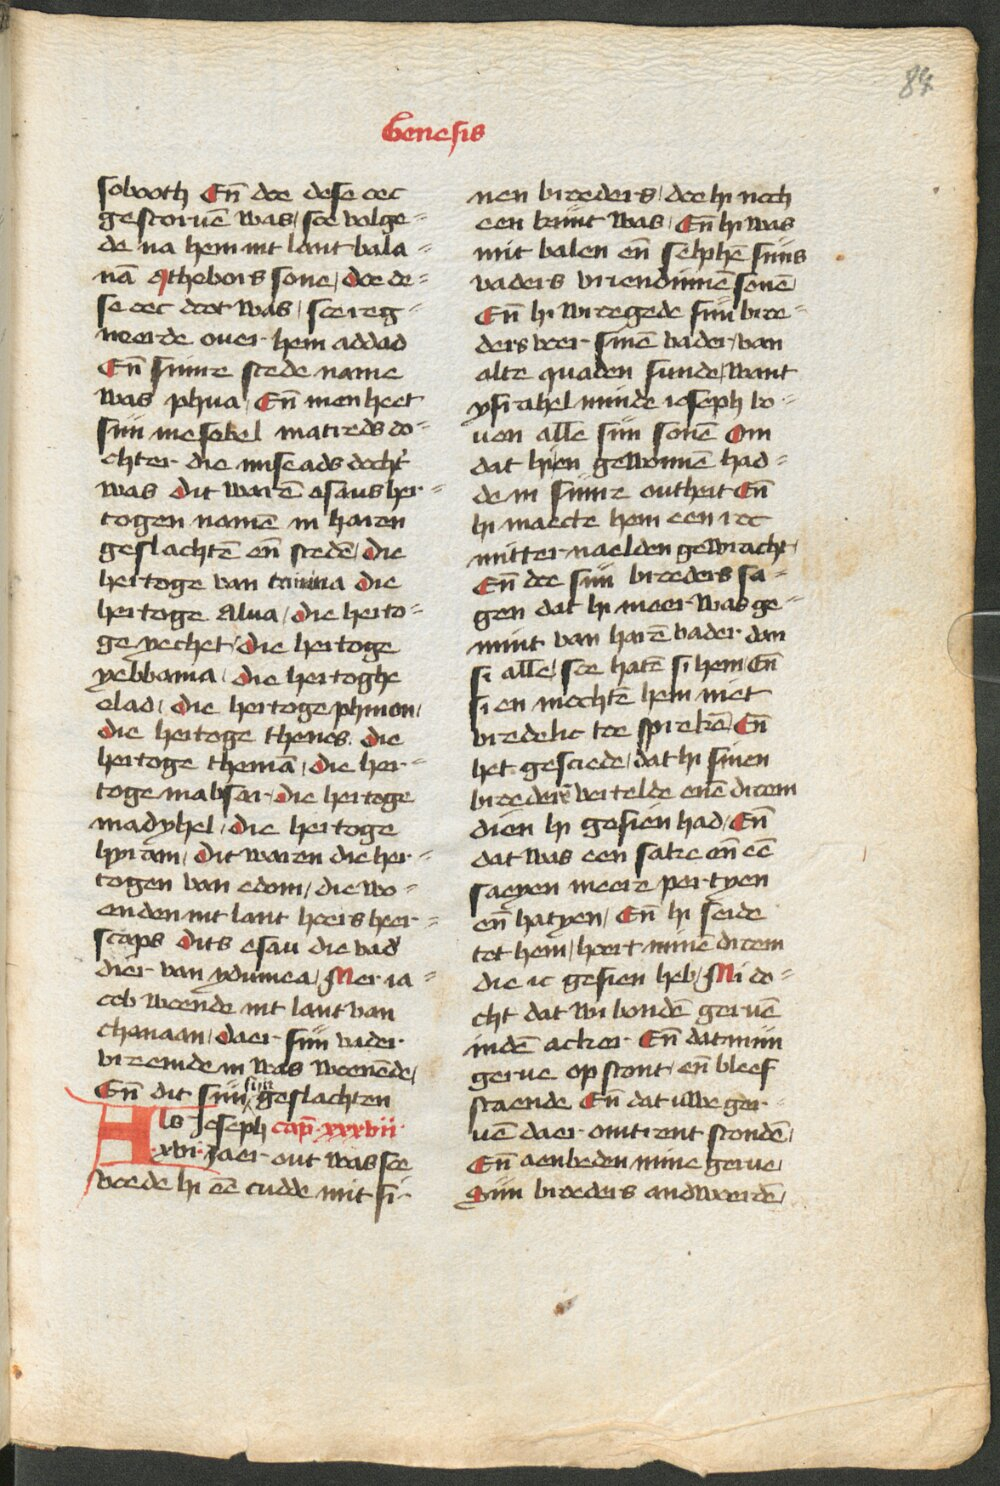 84
Genesis
sobooth En̄ doe dese oec
gestoruē was / soe volge⸗
de na hem int lant bala⸗
nā Athebors sone / doe de⸗
se oec doot was / soe reg⸗
neerde ouer hem addad
En̄ sijnre stede name
was phua / En̄ men heet
sijn mesebel matreds do⸗
chter die miseads docht
was dit warē esaus her⸗
togen namē in haren
geslachtē en̄ stedē / die
hertoge van die
hertoge Alua / die herto⸗
ge yechet / die hertoge
yebbama / die hertoghe
elad / die hertoge phinon /
die hertoge thenes. die
hertoge themā / die her⸗
toge mabsar / die hertoge
madyhel / die hertoge
hyram / dit waren die her⸗
togen van edom / die wo⸗
enden int lant heers heer⸗
scaps dits esau die vad
dier van ydumea / Mer ia⸗
cob woende int lant van
chanaan / daer sijn vader
vreemde in was woenēde /
En̄ dit sijn sijn geslachten
Als Joseph cap̄ xxxvii
.xvi. jaer out was soe
voede hi eē cudde mit si⸗
nen broeders / doe hi noch
een kunt was / En̄ hi was
mit balen en̄ selphē sijns
vaders vriendinnē sonē
En̄ hi wroegede sijn broe⸗
ders voer sinē vader / van
alte quaden sunde / want
ysrahel minde ioseph bo⸗
uen alle sijn sonē Om
dat hien gewonnē had⸗
de in sijnre outheit En̄
hi maecte hem een roc
mitter naelden gewracht /
En̄ doe sijn broeders sa⸗
gen dat hi meer was ge⸗
mint van harē vader dan
si alle / soe hatē si hem / En̄
si en mochtē hem niet
vredelic toe sprekē / En̄
het gesciede / dat hi sinen
broederē vertelde enē droem
dien hi gesien had / En̄
dat was een sake en̄ eē
saeyen meere pertyen
en̄ hatyen / En̄ hi seide
tot hem / hoert minē droem
die ic gesien heb / Mi do⸗
cht dat wi bondē geruē
indē acker En̄ dat mijn
gerue op stont / en̄ bleef
staende En̄ dat uwe ger⸗
uē daer omtrent stondē /
En̄ aenbeden mine gerue /
Sijn broeders andwoerdē /